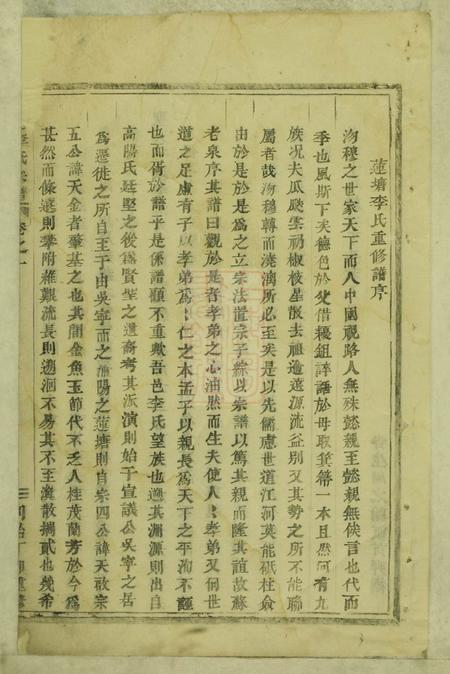 蓮塘李氏重修譜序
沕穆之世家天下而人中國視路人無殊懿親王懿親無俟言也代而
季也風斯下矣德色於父借耰鋤誶語於母取箕箒一本且然何有九
族况夫瓜颷雲礽椒枝星散去祖逾遠源流益別又其勢之所不能聯
屬者哉沕穆轉而澆漓所必至矣是以先儒慮世道江河莫能砥柱僉
由於是於是爲之立宗法置宗子綜以宗譜以篤其親而隆其誼故蘇
老泉序其譜曰觀於是者孝弟之心油然而生夫使人人孝弟又何世
道之足慮有子以孝弟爲仁之本孟子以親長爲天下之平洵不誣
也而胥於譜乎是係譜顧不重歟吾邑李氏望族也遡其淵源則出自
高陽氏廷堅之後爲賢聖之遺裔考其派演則始于宣議公吳寧之居
爲遷徙之所自至于由吳寧而之漁陽之蓮塘則自宗四公諱天敢宗
五公諱天金者肇基之也其間金魚玉節代不乏人桂茂蘭芳於今爲
甚然而條遠則攀附雜艱流長則遡洄不易其不至渙散攜貳也幾希
李氏宗譜 卷之一
同治丁卯重修